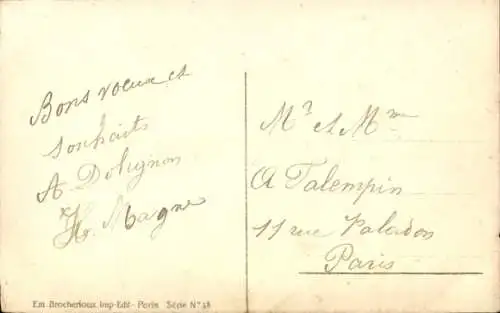 Bons voeux et
souhaits
A Dolignon
H. Magne
Mr et Mme
A Talempin
11 rue Paladon
Paris
Em. Brocherioux, Imp-Edit- Paris Série No 38